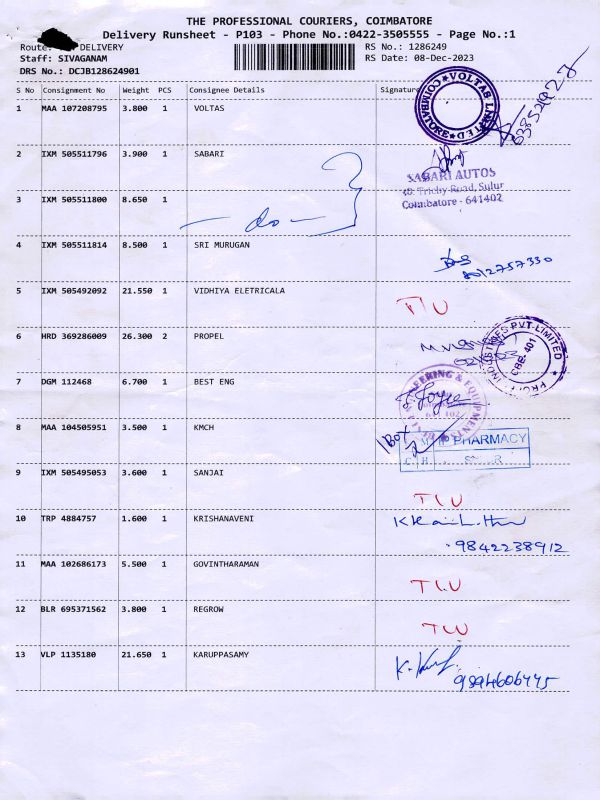 THE PROFESSIONAL COURIERS, COIMBATORE
Delivery Runsheet - P103 - Phone No.:0422-3505555 - Page No.:1
Route: DELIVERY RS No.: 1286249
Staff: SIVAGANAM RS Date: 08-Dec-2023
DRS No.: DCJB128624901
S No Consignment No Weight PCS Consignee Details Signature
1 MAA 107208795 3.800 1 VOLTAS
VOLTAS LIMITED COIMBATORE
2 IXM 505511796 3.900 1 SABARI
SABARI AUTOS
Trichy Road, Sulur
Coimbatore - 641402
3 IXM 505511800 8.650 1
do
4 IXM 505511814 8.500 1 SRI MURUGAN
8012757330
5 IXM 505492092 21.550 1 VIDHIYA ELETRICALA
TLU
6 HRD 369286009 26.300 2 PROPEL
INDUSTRIES PVT LIMITED
CBE. 401
7 DGM 112468 6.700 1 BEST ENG
8 MAA 104505951 3.500 1 KMCH
1 Box
PHARMACY
9 IXM 505495053 3.600 1 SANJAI
TLU
10 TRP 4884757 1.600 1 KRISHANAVENI
9842238912
11 MAA 102686173 5.500 1 GOVINTHARAMAN
TLU
12 BLR 695371562 3.800 1 REGROW
TLU
13 VLP 1135180 21.650 1 KARUPPASAMY
9894606445